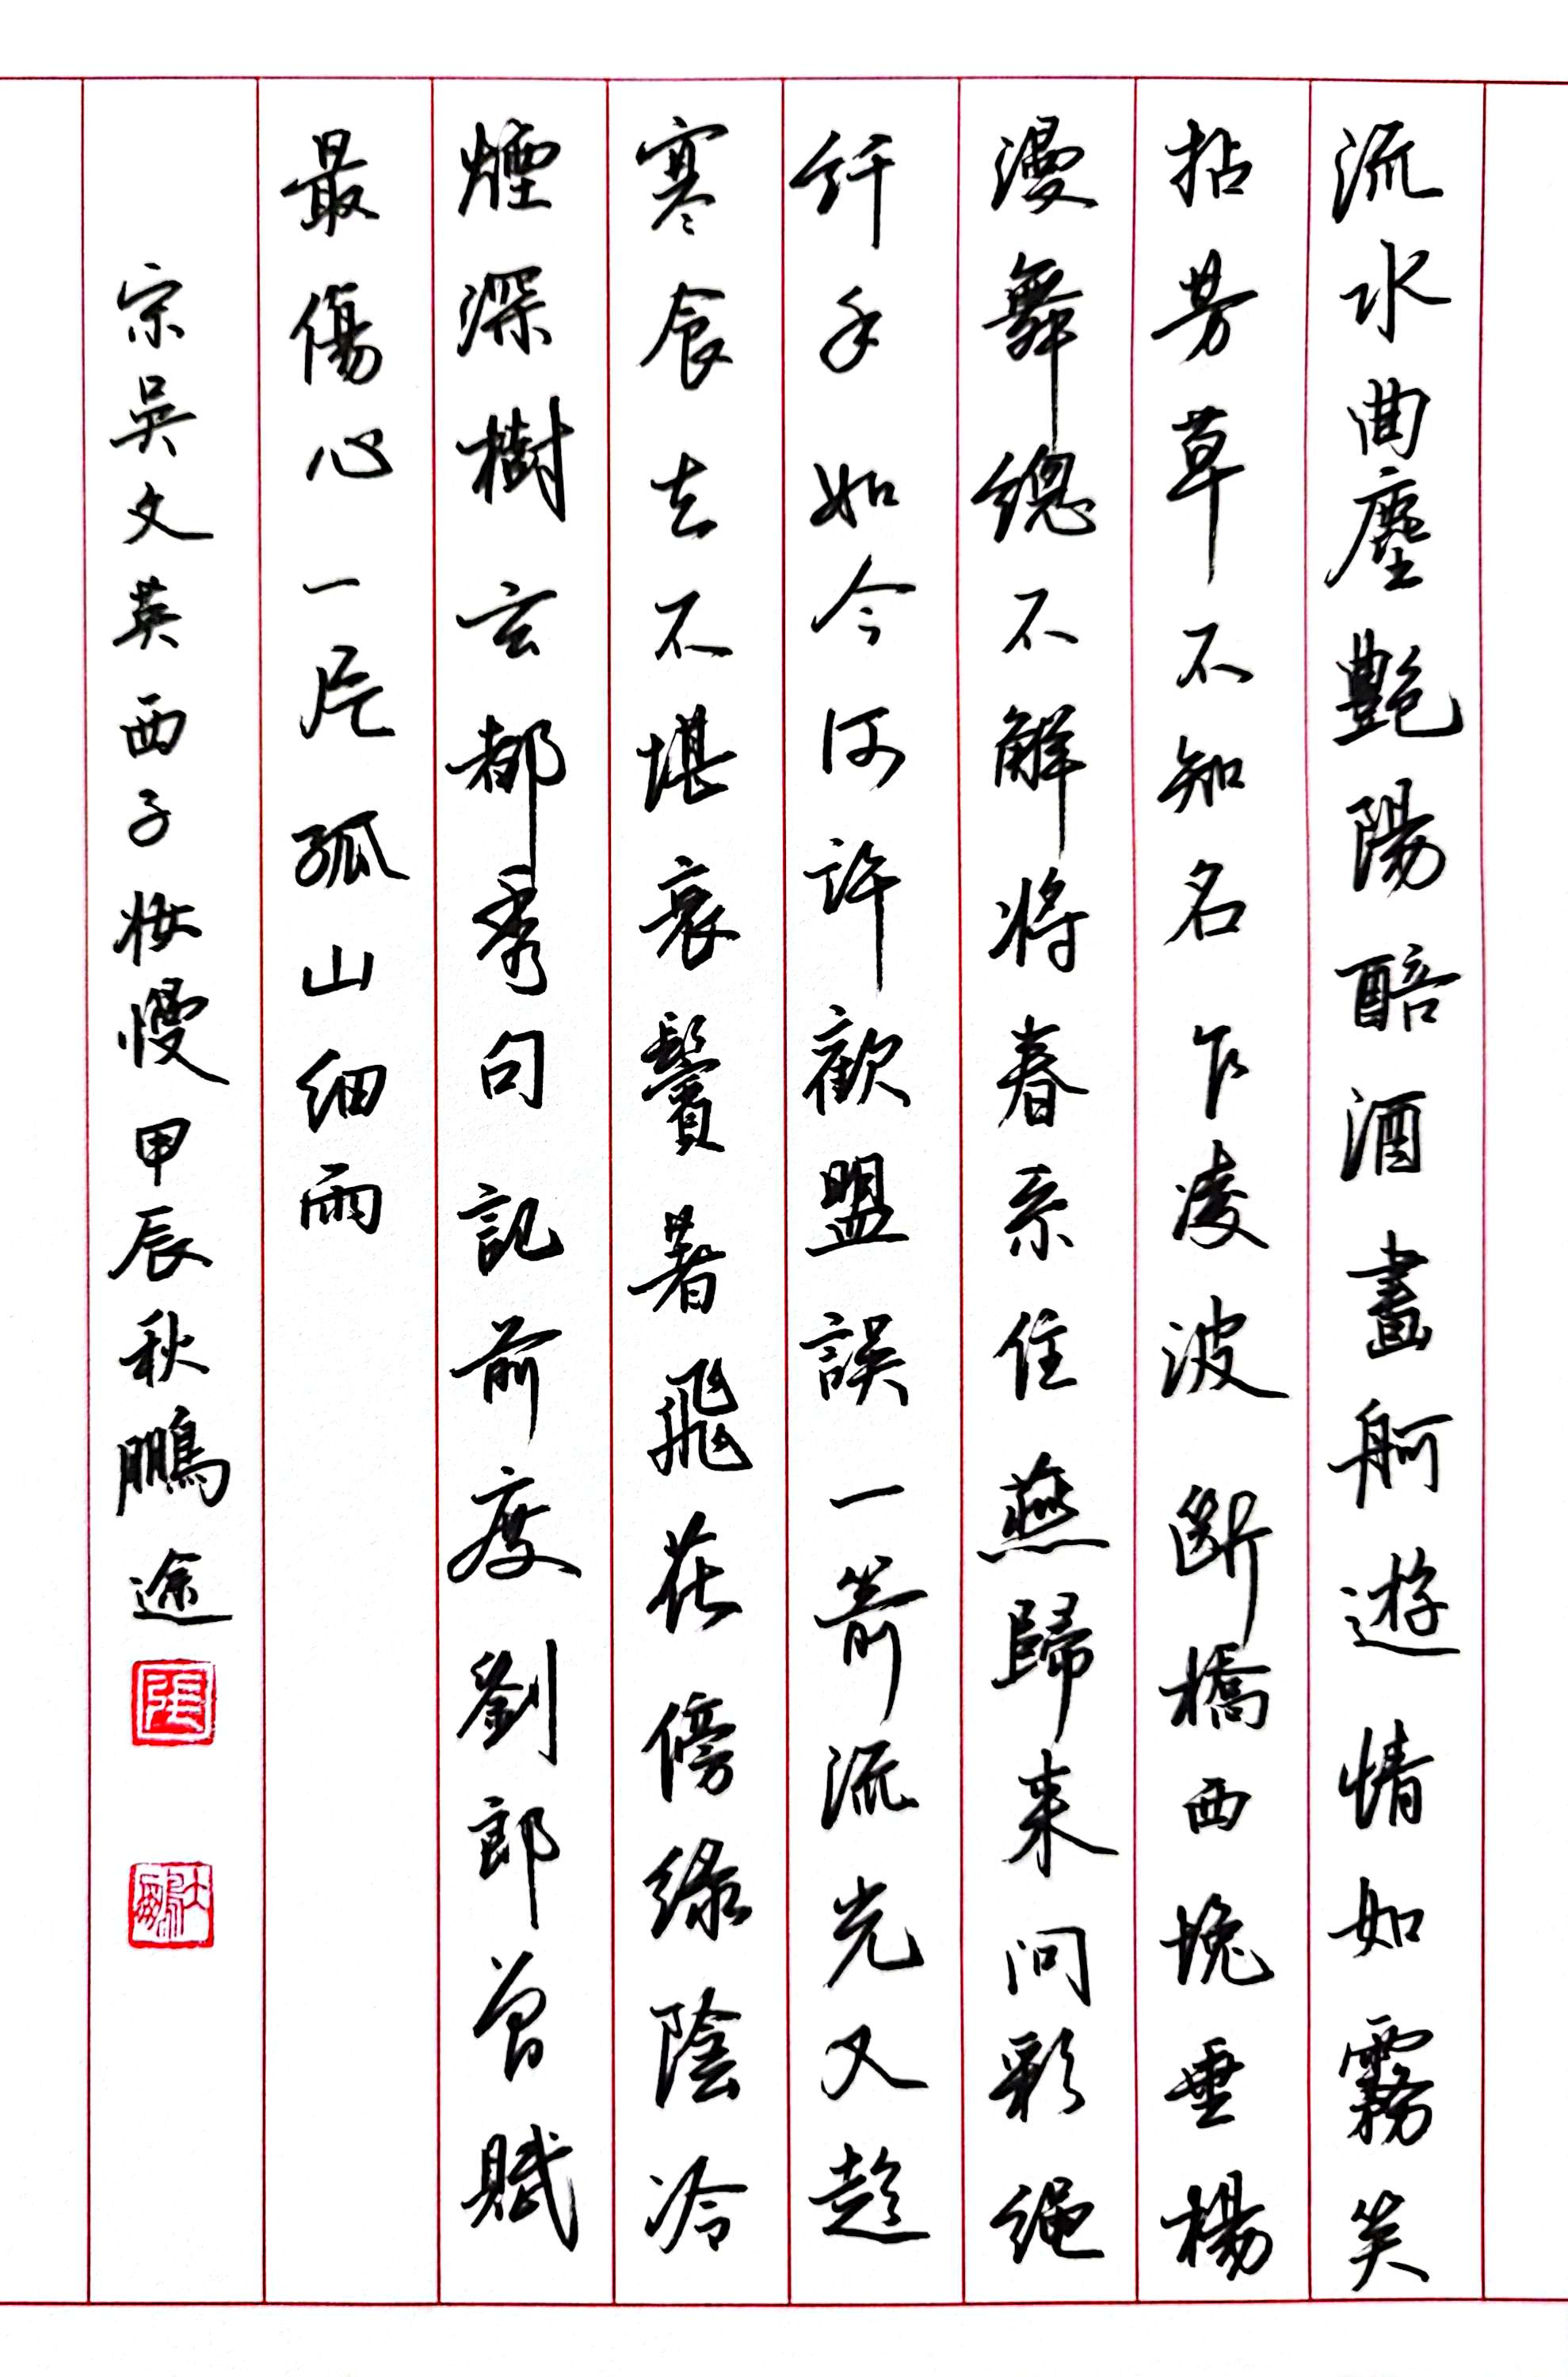 流水曲塵艷陽醅酒畫舸遊情如霧笑
拈芳草不知名乍凌波斷橋西堍垂楊
漫舞總不解將春系住燕歸来问彩绳
纤手如今何許歡盟誤一箭流光又趁
寒食去不堪衰鬢著飛花傍綠陰冷
煙深樹玄都秀句記前度劉郎曾賦
最傷心一片孤山细雨
宗吳文英西子妝慢甲辰秋鵬途